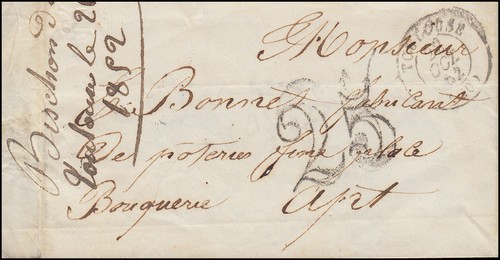 Monsieur
Bonnet fabricant
De poteries fine place
Bouquerie Apt
25
TOULOUSE
OCT
52
Bischon
Toulouse le 2
1852